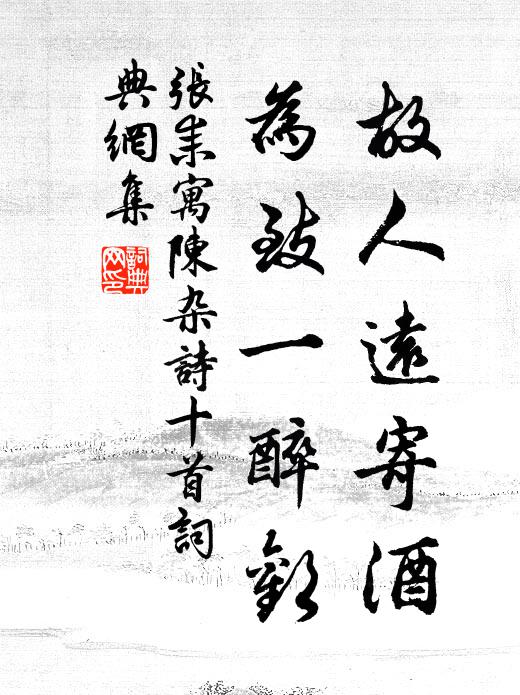 故人遠寄酒
為致一醉歡
張耒寓陳杂詩十首詞
典網集
詞典
网印